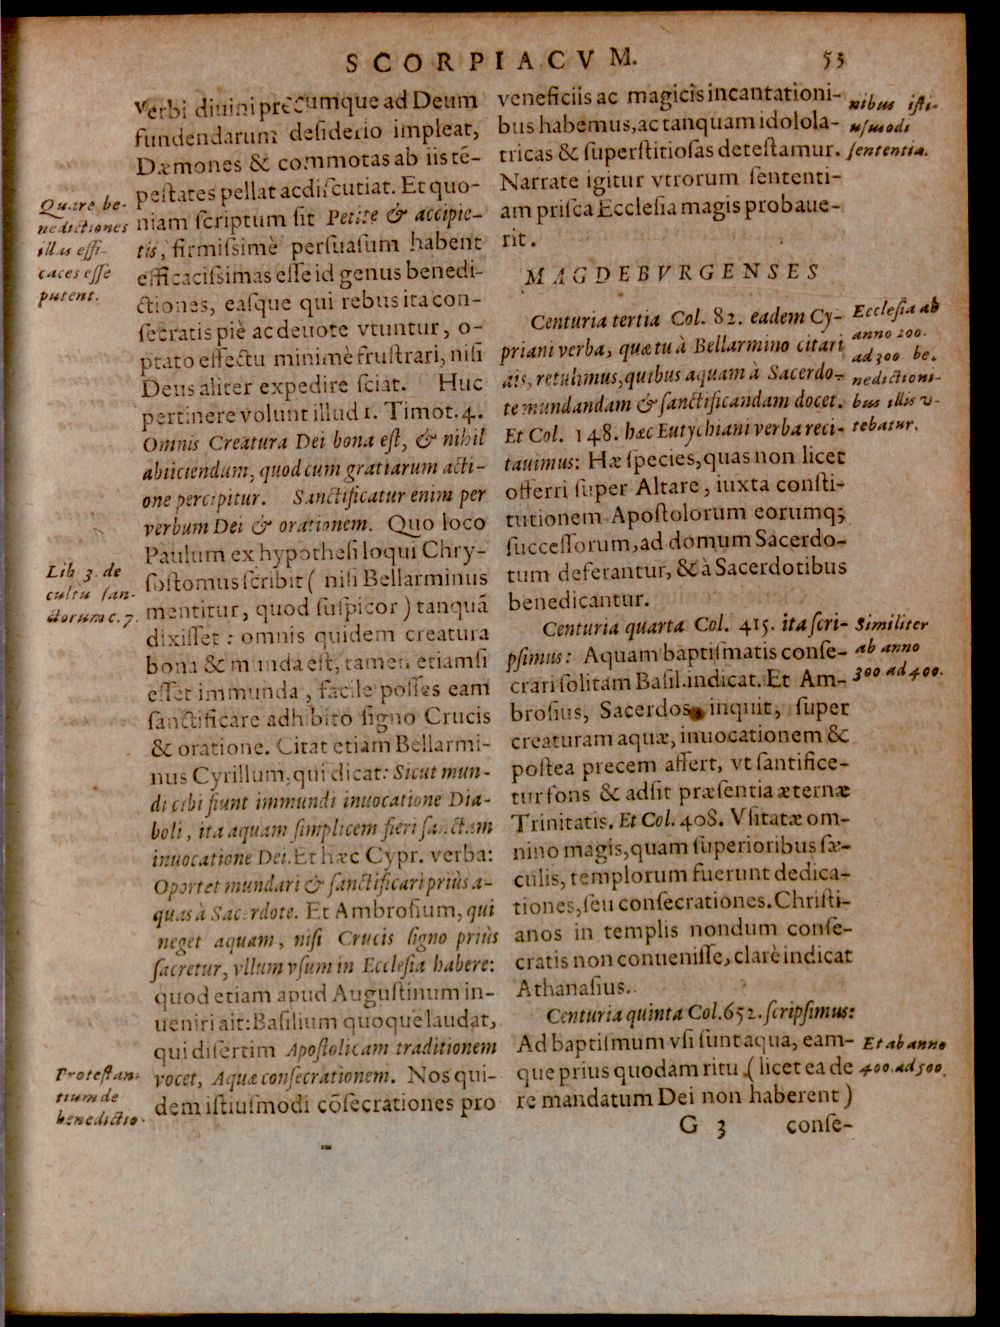 SCORPIACVM. 53
Verbi diuini precumque ad Deum
fundendarum desiderio impleat,
Dæmones & commotas ab iis tē-
pestates pellat ac discutiat. Et quo-
niam scriptum sit Petite & accipie-
tis, firmissimè persuasum habent
efficacissimas esse id genus benedi-
ctiones, easque qui rebus ita con-
secratis piè ac deuote vtuntur, o-
ptato effectu minimè frustrari, nisi
Deus aliter expedire sciat. Huc
pertinere volunt illud 1. Timot. 4.
Omnis Creatura Dei bona est, & nihil
abiiciendum, quod cum gratiarum acti-
one percipitur. Sanctificatur enim per
verbum Dei & orationem. Quo loco
Paulum ex hypothesi loqui Chry-
sostomus scribit ( nisi Bellarminus
mentitur, quod suspicor ) tanquā
dixisset : omnis quidem creatura
bona & munda est, tamen etiamsi
esset immunda, facile posses eam
sanctificare adhibito signo Crucis
& oratione. Citat etiam Bellarmi-
nus Cyrillum, qui dicat: Sicut mun-
di cibi fiunt immundi inuocatione Dia-
boli, ita aquam simplicem fieri sanctam
inuocatione Dei. Et hæc Cypr. verba:
Oportet mundari & sanctificari priùs a-
quas à Sacerdote. Et Ambrosium, qui
neget aquam, nisi Crucis signo priùs
sacretur, vllum vsum in Ecclesia habere:
quod etiam apud Augustinum in-
ueniri ait: Basilium quoque laudat,
qui disertim Apostolicam traditionem
vocet, Aquæ consecrationem. Nos qui-
dem istiusmodi cōsecrationes pro
Quare be-
nedictiones
illas effi-
caces esse
putent.
Lib 3. de
cultu san-
ctorum c. 7.
Protestan-
tium de
benedictio-
veneficiis ac magicis incantationi-
bus habemus, ac tanquam idolola-
tricas & superstitiosas detestamur.
Narrate igitur vtrorum sententi-
am prisca Ecclesia magis probaue-
rit.
MAGDEBVRGENSES
Centuria tertia Col. 82. eadem Cy-
priani verba, quæ tu à Bellarmino citari
ais, retulimus, quibus aquam à Sacerdo-
te mundandam & sanctificandam docet.
Et Col. 148. hæc Eutychiani verba reci-
tauimus: Hæ species, quas non licet
offerri super Altare, iuxta consti-
tutionem Apostolorum eorumq;
successorum, ad domum Sacerdo-
tum deferantur, & à Sacerdotibus
benedicantur.
Centuria quarta Col. 415. ita scri-
psimus: Aquam baptismatis conse-
crari solitam Basil. indicat. Et Am-
brosius, Sacerdos, inquit, super
creaturam aquæ, inuocationem &
postea precem affert, vt santifice-
tur fons & adsit præsentia æternæ
Trinitatis. Et Col. 408. Vsitatæ om-
nino magis, quam superioribus sæ-
culis, templorum fuerunt dedica-
tiones, seu consecrationes. Christi-
anos in templis nondum conse-
cratis non conuenisse, clarè indicat
Athanasius.
Centuria quinta Col. 652. scripsimus:
Ad baptismum vsi sunt aqua, eam-
que prius quodam ritu ( licet ea de
re mandatum Dei non haberent )
nibus isti-
usmodi
sententia.
Ecclesia ab
anno 200.
ad 300 be-
nedictioni-
bus illis v-
tebatur.
Similiter
ab anno
300 ad 400.
Et ab anno
400. ad 500.
G 3 conse-